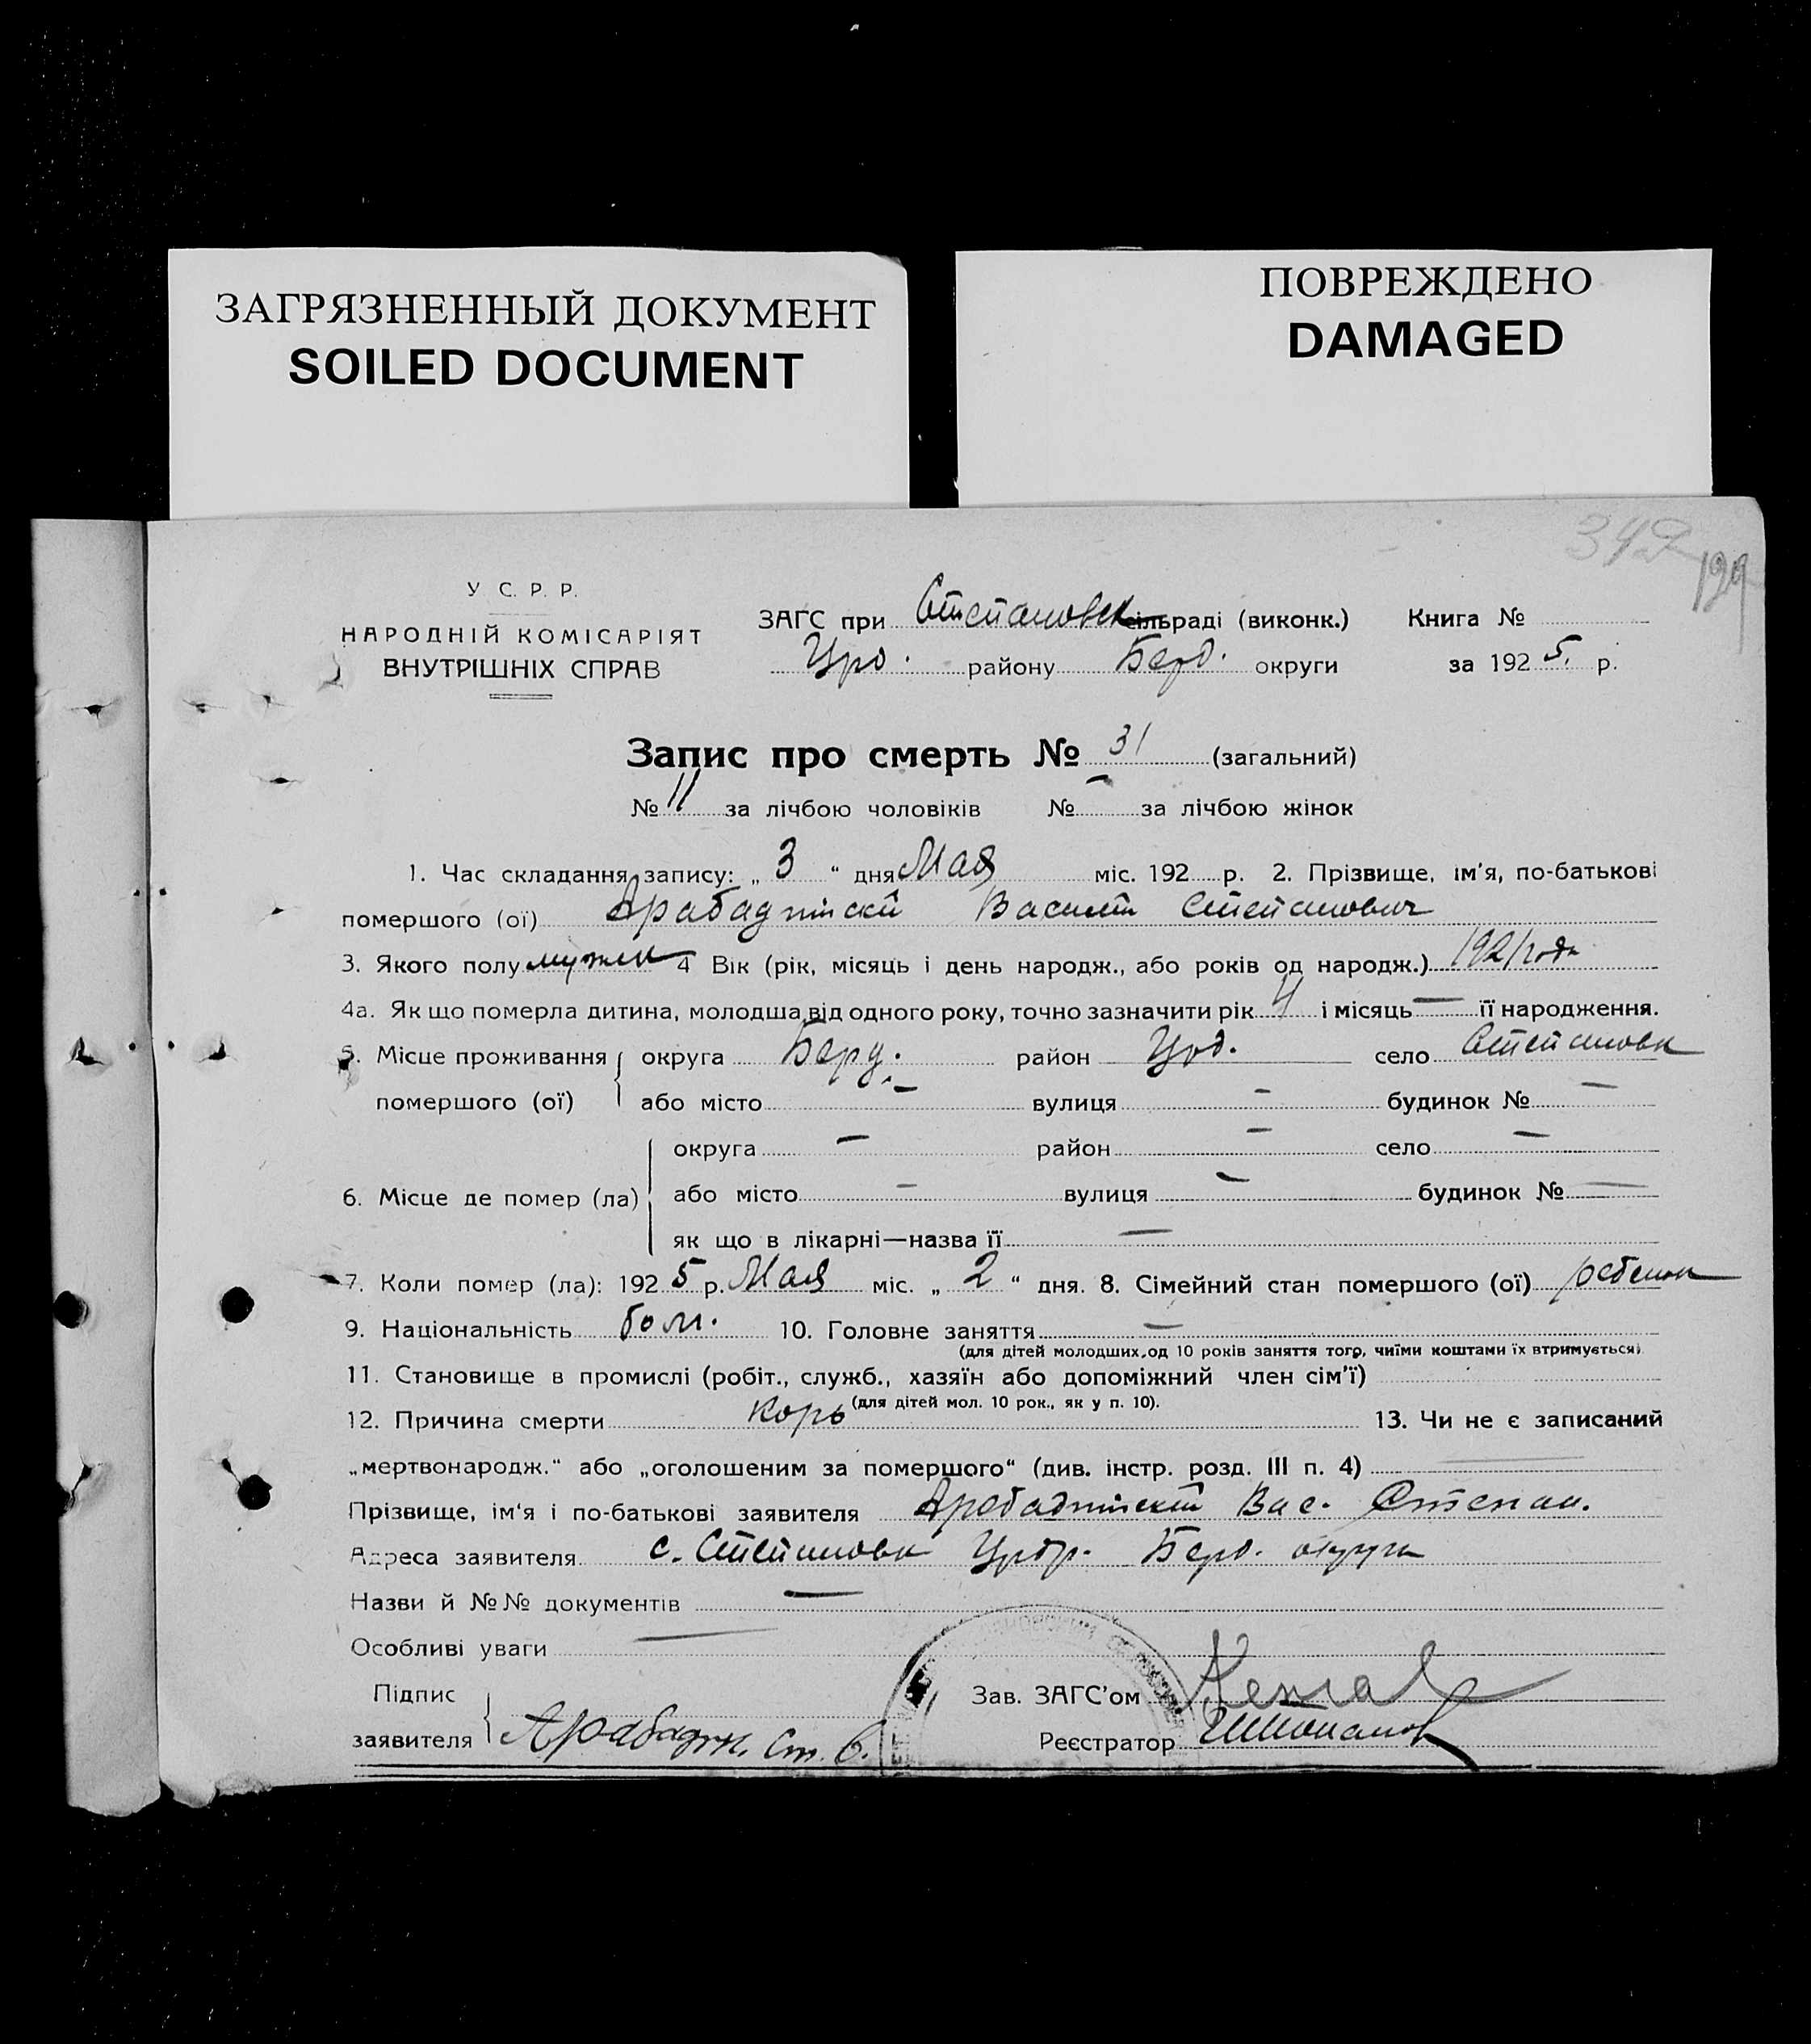 ЗАГРЯЗНЕННЫЙ ДОКУМЕНТ
SOILED DOCUMENT
ПОВРЕЖДЕНО
DAMAGED
342
199
У С. Р. Р.
НАРОДНІЙ КОМІСАРІЯТ
ВНУТРІШНІХ СПРАВ
ЗАГС при Степановск сільраді (виконк.) Книга №
району Берд. округи за 1925. р.
Запис про смерть № 31 (загальний)
№ 11 за лічбою чоловіків № — за лічбою жінок
1. Час складання запису: „ 3 “ дня Мая міс. 192 р. 2. Прізвище, ім'я, по-батькові
помершого (ої) Василий Степанович
3. Якого полу мужск 4 Вік (рік, місяць і день народж., або років од народж.) 1921 года
4а. Як що померла дитина, молодша від одного року, точно зазначити рік 4 і місяць — її народження.
5. Місце проживання округа Берд. район село Степановк
помершого (ої) або місто — вулиця — будинок № —
округа — район — село —
6. Місце де помер (ла) або місто — вулиця — будинок № —
як що в лікарні—назва її —
7. Коли помер (ла): 1925 р. Мая міс. „ 2 “ дня. 8. Сімейний стан помершого (ої) ребенок
9. Національність болг. 10. Головне заняття —
(для дітей молодших од 10 років заняття того, чиїми коштами їх втримується)
11. Становище в промислі (робіт., служб., хазяїн або допоміжний член сім'ї)
(для дітей мол. 10 рок., як у п. 10).
12. Причина смерти корь 13. Чи не є записаний
„мертвонародж.“ або „оголошеним за помершого“ (див. інстр. розд. III п. 4) —
Прізвище, ім'я і по-батькові заявителя Вас. Степан.
Адреса заявителя с. Степановк Берд. округи
Назви й №№ документів —
Особливі уваги —
Підпис
заявителя Арабадж. Ст. В.
Зав. ЗАГС'ом
Реєстратор